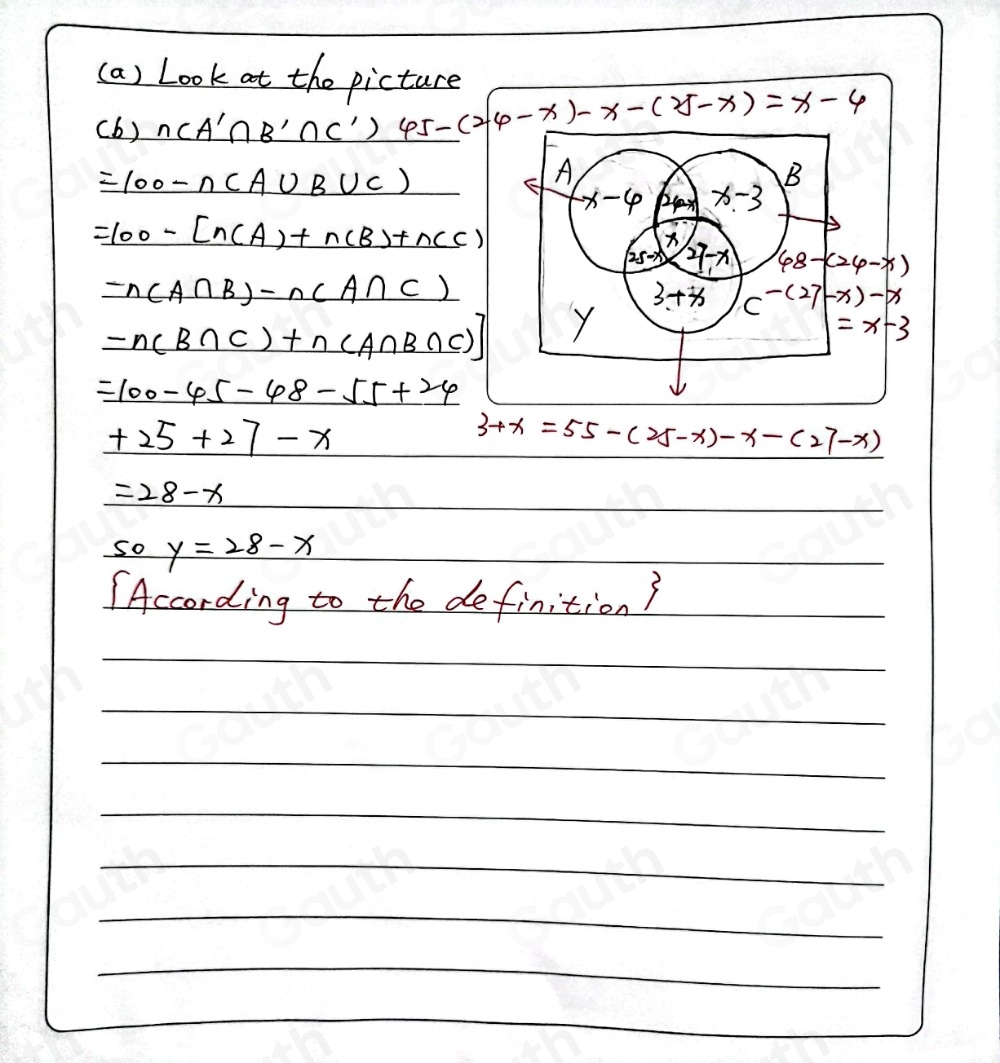 (a) Look at the picture
(b) n(A'∩B'∩C')
=100-n(A∪B∪C)
=100-[n(A)+n(B)+n(C)
-n(A∩B)-n(A∩C)
-n(B∩C)+n(A∩B∩C)]
=100-45-48-55+24
+25+27-x
=28-x
so y=28-x
{According to the definition}
45-(24-x)-x-(25-x)=x-4
A
B
x-4
24-x
x-3
x
25-x
27-x
3+x
C
Y
48-(24-x)
-(27-x)-x
=x-3
3+x=55-(25-x)-x-(27-x)
Gauth